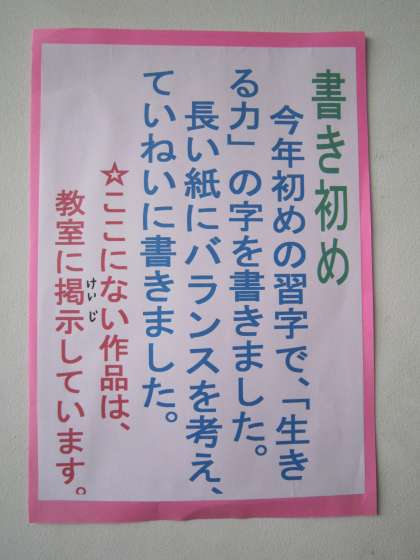 書き初め
今年初めの習字で、「生き
る力」の字を書きました。
長い紙にバランスを考え、
ていねいに書きました。
☆ここにない作品は、
教室に掲示しています。
けいじ